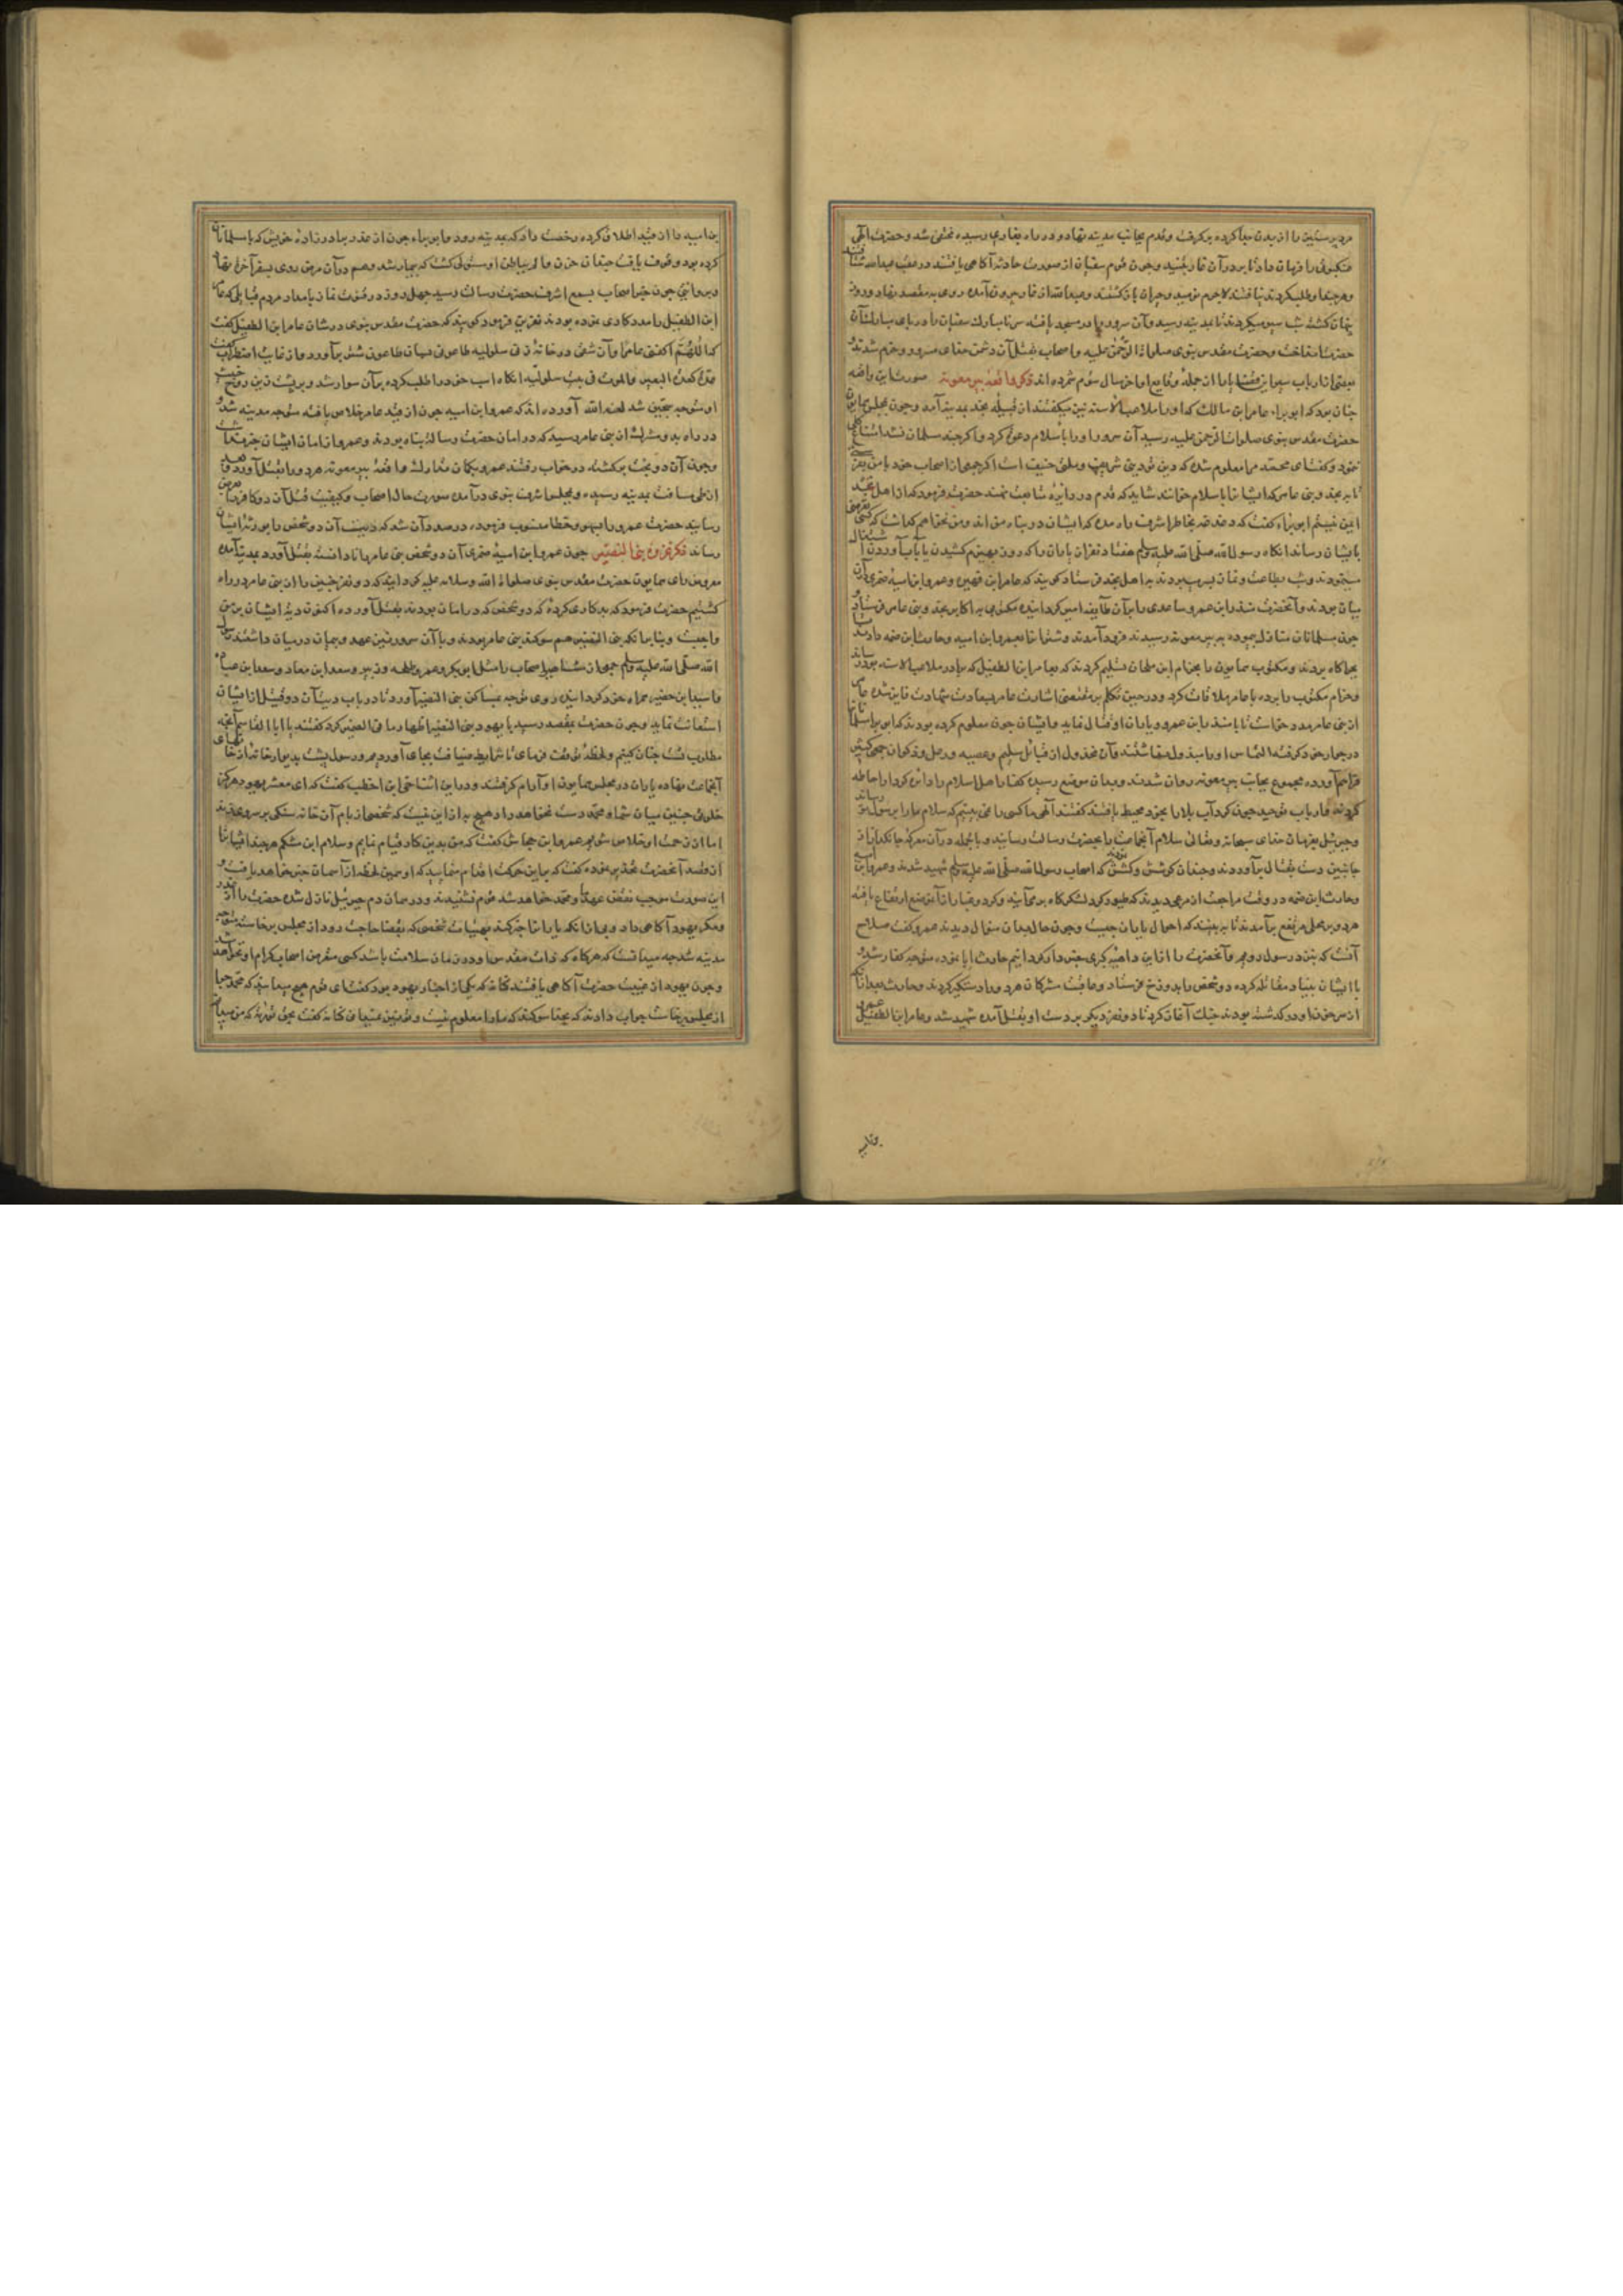 مرد پرستیزن را از بدن جدا کرده برگرفت و قدم بجانب مدینه نهاد و در راه بغاری رسیده مختفی شد و حضرت الهی
عنکبوتی را فرمان داد تا بر در آن غار تنید و چون قوم سفیان از صورت حادثه آکاهی یافتند در عقب عبدالله
و هر چند او طلب کردند نیافتند لاجرم نومید و حیران باز کشتند و عبدالله از غار بیرون آمده روی به مقصد نهاد و روز
پنهان کشته شب سیر میکرد تا بمدینه رسید و آن سرور را در مسجد یافته سر نامبارک سفیان را در پای مبارک آن
حضرت انداخت و حضرت مقدس نبوی صلوات الرحمن علیه و اصحاب بقتل آن دشمن خدای مسرور و خرم شدند
بعضی از ارباب سیر این قضایا را از جمله وقایع اواخر سال سوم شمرده اند ذکر واقعه بیر معونه صورت این واقعه
چنان بود که ابو براء عامر ابن مالک که او را ملاعب الاسنه نیز میکفتند از قبیله نجد بمدینه آمد و چون بمجلس همایون
حضرت مقدس نبوی صلوات الرحمن علیه رسید آن سرور او را باسلام دعوت کرد و اکر چند مسلمان نشد امتناع
ننمود و کفت ای محمد مرا معلوم شد که دین تو دینی شریف و ملتی حنیف است اکر جمعی از اصحاب خود با من
تا به نجد و بنی عامر که ایشان را باسلام خوانند شاید که قدم در دایره متابعت نهند حضرت فرمود که از اهل نجد
ایمن نیستم ابو براء کفت که دغدغه بخاطر اشرف راه مده که ایشان در پناه من اند و من نخواهم کذاشت که کسی
بایشان رساند انکاه رسول الله صلی الله علیه وسلم هفتاد نفر از یاران را که روز بهیزم کشیدن یا آب آوردن
مینمودند و شب بطاعت و نماز بسر میبردند به اهل نجد فرستاد کویند که عامر ابن فهیره و عمرو ابن امیه ضمری
بودند و آنحضرت منذر ابن عمرو ساعدی را بر آن طایفه امیر کردانیده مکتوبی به اکابر نجد و بنی عامر فرستاد
چون مسلمانان منازل پیموده به بیر معونه رسیدند فرود آمدند و شتران را بعمرو ابن امیه و حارث ابن صمه دادند
بچراکاه بردند و مکتوب همایون را بحرام ابن ملحان تسلیم کردند که بعامر ابن الطفیل که برادر ملاعب الاسنه بود رساند
و حرام مکتوب را برده با عامر ملاقات کرد و در حین تکلم شخصی باشارت عامر بسعادت شهادت فایز شد
از بنی عامر مدد خواست تا با منذر ابن عمرو و یاران او قتال نماید و ایشان چون معلوم کرده بودند که ابو براء
در جوار خود کرفته التماس او را مبذول نداشتند و آن مخذول از قبایل سلیم و عصیه و رعل و ذکوان جمعی کثیر
فراهم آورده مجموع بجانب بیر معونه روان شدند و بدان موضع رسیده کفار اهل اسلام را دایره کردار احاطه
کردند و ارباب توحید چون کرداب بلا را بخود محیط یافتند کفتند الهی ما کسی را نمی بینیم که سلام ما را برسول تو
و جبرئیل بفرمان خدای سبحانه و تعالی سلام آنجماعت را بحضرت رسالت رسانید و بالجمله در آن معرکه جانکداز از
جانبین دست بقتال برآوردند و چندان کوشش و کشش نمودند که اصحاب رسول الله صلی الله علیه وسلم شهید شدند و عمرو ابن امیه
و حارث ابن صمه در وقت مراجعت از مرعی دیدند که طیور کرد لشکرکاه بر می آیند و کرد و غبار از آن موضع ارتفاع یافته
هر دو بر محلی مرتفع بر آمدند تا به بینند که احوال یاران چیست و چون حال بدان منوال دیدند عمرو کفت صلاح
آنست که بنزد رسول رویم و آنحضرت را از این داهیه کبری خبردار کردانیم حارث ابا نموده متوجه کفار شد و
با ایشان بنیاد مقاتله کرده دو شخص را بدوزخ فرستاد و عاقبت مشرکان هر دو را دستکیر کردند و حارث بعد از آنکه
از سر خون او در کذشته بودند جنک آغاز کرد تا دو نفر دیکر بر دست او بقتل آمده شهید شد و عامر ابن الطفیل عمرو
بن امیه را از قید اطلاق کرده رخصت داد که بمدینه رود و ابو براء چون از غدر برادرزاده خویش که با مسلمانان
کرده بود وقوف یافت چندان حزن و الم بر باطن او مستولی کشت که بیمار شد و هم در آن مرض روی بسفر آخرت نهاد
و بروایتی چون خبر اصحاب بسمع اشرف حضرت رسالت رسید چهل روز در قنوت نماز بامداد مردم قبایلی که عامر
ابن الطفیل را مددکاری نموده بودند نفرین فرمود کویند که حضرت مقدس نبوی در شان عامر ابن الطفیل کفت
که اللهم اکفنی عامرا و آن شقی در خانه زنی سلولیه طاعونی بسان طاعون شتر بر آورد و از غایت اضطراب کفت
غدة کغدة البعیر والموت فی بیت سلولیه انکاه اسب خود را طلب کرده بر آن سوار شد و بر پشت زین روح خبیث
او متوجه سجین شد لعنه الله آورده اند که عمرو ابن امیه چون از قید عامر خلاص یافته متوجه مدینه شد و
در راه بدو مشرک از بنی عامر رسید که در امان حضرت رسالت پناه بودند و عمرو از امان ایشان خبر نداشت
و چون آن دو بخت برکشته در خواب رفتند عمرو بکمان تدارک واقعه بیر معونه هر دو را بقتل آورد و بعد
از طی مسافت بمدینه رسیده و بمجلس اشرف نبوی در آمده صورت حال اصحاب و کیفیت قتل آن دو کافر بعرض
رسانید حضرت عمرو را بسهو و خطا منسوب فرموده در صدد آن شد که دیت آن دو شخص را بورثه ایشان
رساند ذکر غزوه بنی النضیر چون عمرو ابن امیه ضمری آن دو شخص بنی عامر را نادانسته بقتل آورد بمدینه آمده
معروض رای همایون حضرت مقدس نبوی صلوات الله و سلامه علیه کردانید که دو نفر چنین را از بنی عامر در راه
کشتیم حضرت فرمود که بد کاری کردهٔ که دو شخص که در امان بودند بقتل آوردهٔ اکنون دیة ایشان بر من
واجبست و بنابر آنکه بنی النضیر هم سوکند بنی عامر بودند و با آن سرور نیز عهد و پیمان در میان داشتند رسول
الله صلی الله علیه وسلم جمعی از مشاهیر اصحاب را مثل ابوبکر و عمر و طلحه و زبیر و سعد ابن معاذ و سعد ابن عباده
و اسید ابن حضیر همراه خود کردانیده روی توجه بمساکن بنی النضیر آورد تا در باب دیت آن دو قتیل از ایشان
استعانت نماید و چون حضرت بمقصد رسید با یهود بنی النضیر اظهار ما فی الضمیر کرد کفتند یا ابا القاسم آنچه
مطلوب تست چنان کنیم و لحظهٔ توقف فرمای تا شرایط ضیافت بجای آوریم و رسول پشت بدیوار خانه از خانهای
آنجماعت نهاده یاران در مجلس همایون او آرام کرفتند و در این اثنا حیی ابن اخطب کفت که ای معشر یهود هرکز
خلوتی چنین میان شما و محمد دست نخواهد داد هیچ به از این نیست که شخصی از بام آن خانه سنکی بر سر وی زند
تا از زحمت او خلاص شویم عمرو ابن جحاش کفت که من بدین کار قیام نمایم و سلام ابن مشکم هر چند ایشان را
از قصد آنحضرت تحذیر نموده کفت که بر این حرکت اقدام منمایید که او همین لحظه از آسمان خبر خواهد یافت و
این صورت موجب نقض عهد ما و محمد خواهد شد قوم نشنیدند و در همان دم جبرئیل نازل شده حضرت را از غدر
و مکر یهود آکاهی داد و بی انکه یاران را خبر کند بهیأت شخصی که بقضاء حاجت رود از مجلس برخاسته متوجه
مدینه شد چه میدانست که هرکاه که ذات مقدس او در ضمان سلامت باشد کسی متعرض اصحاب کرام او نخواهد شد
و چون یهود از غیبت حضرت آکاهی یافتند کنانه که یکی از احبار یهود بود کفت ای قوم هیچ میدانید که محمد چرا
از مجلس برخاست جواب دادند که بخدا سوکند که ما را معلوم نیست و تو نیز نمیدانی کنانه کفت بحق توریة که من میدانم